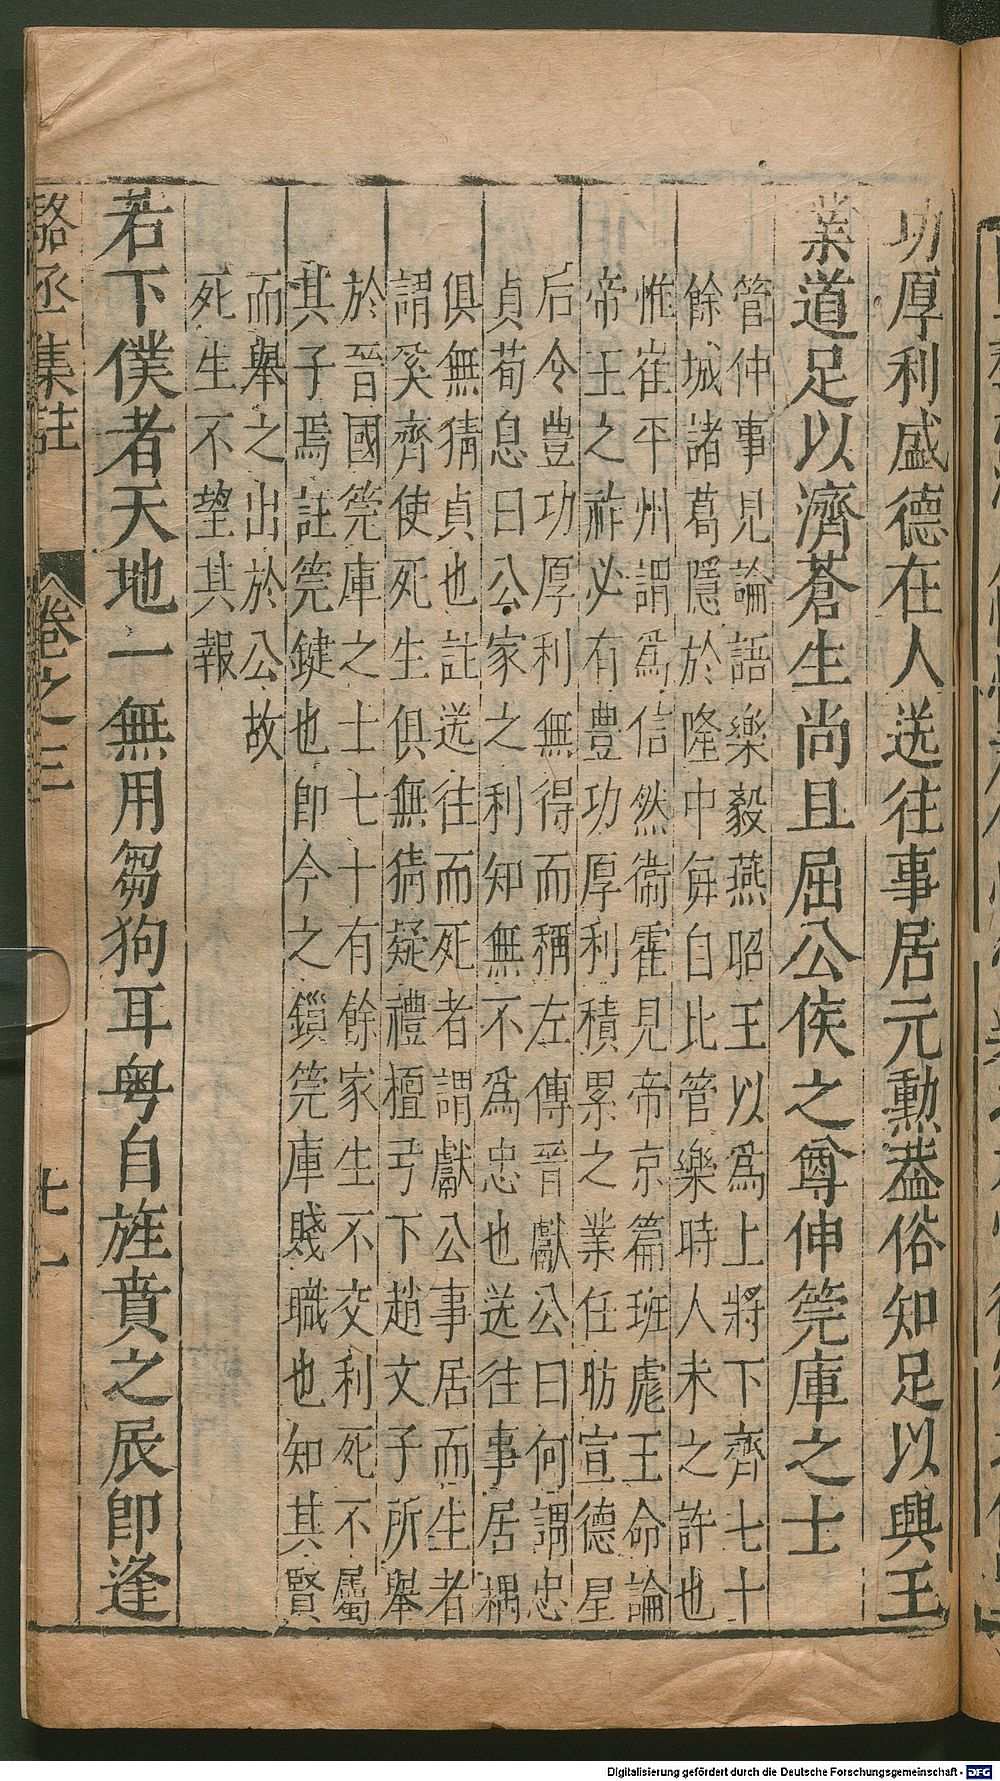 功厚利盛德在人送往事居元勲葢俗知足以興王
業道足以濟蒼生尚且屈公侯之尊伸筦庫之士
管仲事見論語樂毅燕昭王以爲上將下齊七十
餘城諸葛隱於隆中每自比管樂時人未之許也
惟崔平州謂爲信然衞霍見帝京篇班彪王命論
帝王之祚必有豊功厚利積累之業任昉宣德星
后令豊功厚利無得而稱左傳晉獻公曰何謂忠
貞荀息曰公家之利知無不爲忠也送往事居耦
俱無猜貞也註送往而死者謂獻公事居而生者
謂奚齊使死生俱無猜疑禮檀弓下趙文子所舉
於晉國筦庫之士七十有餘家生不交利死不屬
其子焉註筦鍵也即今之鎖筦庫賤職也知其賢
而舉之出於公故
死生不望其報
若下僕者天地一無用芻狗耳粤自旌賁之辰卽逢
駱丞集註 卷之三 七一
Digitalisierung gefördert durch die Deutsche Forschungsgemeinschaft - DFG